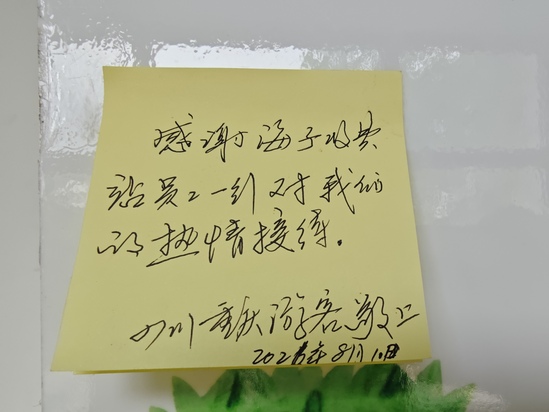 感谢海子收费
站员工一行对我们
的热情接待.
四川重庆游客敬上
8月10日